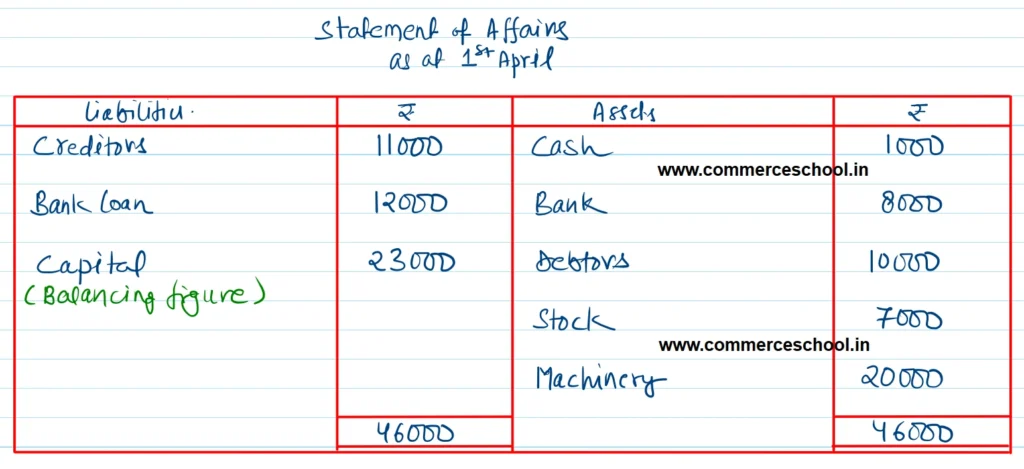 Statement of Affairs
as at 1st April
Liabilities. ₹ Assets ₹
Creditors 11000 Cash 1000
www.commerceschool.in
Bank Loan 12000 Bank 8000
Capital 23000 Debtors 10000
(Balancing figure)
Stock 7000
www.commerceschool.in
Machinery 20000
46000 46000